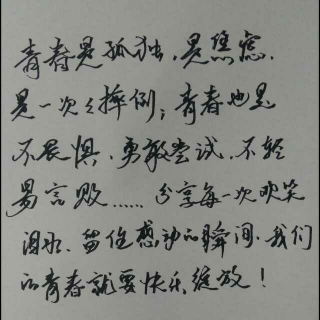 青春是孤独,是焦虑,
是一次次摔倒;青春也是
不畏惧,勇敢尝试,不轻
易言败……分享每一次欢笑
泪水,留住感动的瞬间,我们
的青春就要快乐绽放!